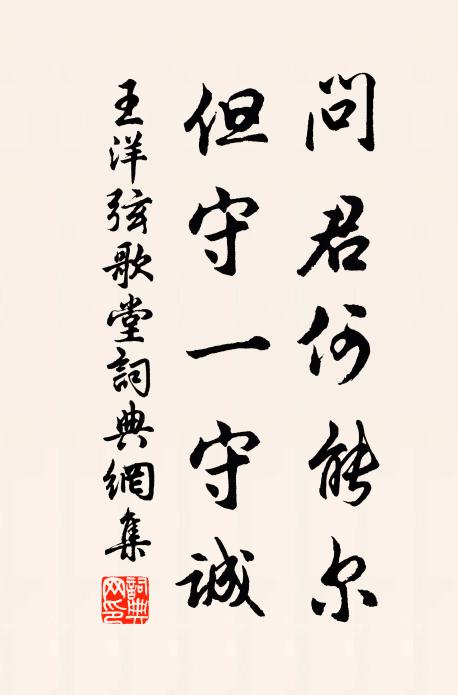 問君何能尔
但守一守誠
王洋弦歌堂詞典網集
詞典网印